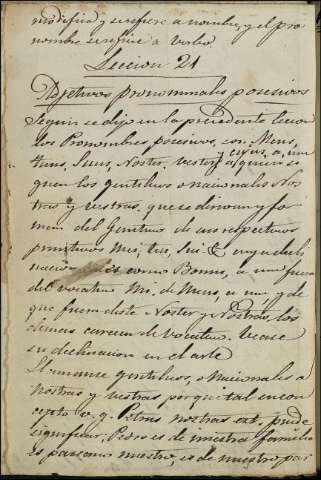 modifica y se refiere a nombre, y el pro-
nombre se refiere a Verbo
Leccion 21
Adjetivos pronominales posesivos
Segun se dijo en la precedente leccion
los Pronombres posesivos son: Meus,
tuus, Suus, Noster, Vester, y cujus, a, um
a quienes si-
guen los gentilicios o nacionales Nos-
tras y Vestras, que se derivan y for-
man del Genitivo de sus respectivos
primitivos Mei, tui, Sui &
como Bonus, a um fuera
del vocativo Mi, de Meus, a um, y de
que fuera de este Noster y Nostras, los
demas carecen de Vocativo. Vease
su declinacion en el arte
Llamanse gentilicios, o Nacionales a
nostras y vestras porque tal en con-
cepto v. g. Petrus nostras est, puede
significar, Pedro es de nuestra familia
es paisano nuestro, es de nuestro par